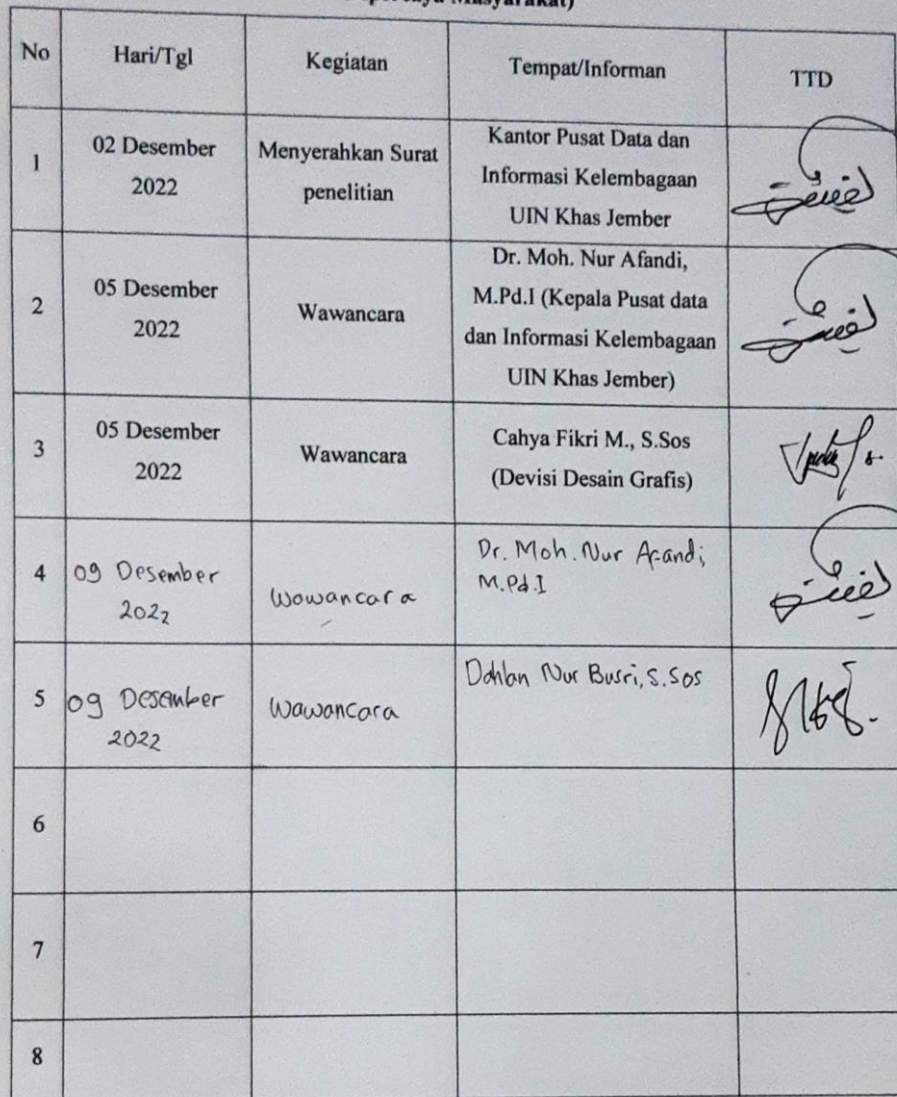 Masyarakat)
No Hari/Tgl Kegiatan Tempat/Informan TTD
1
02 Desember
2022
Menyerahkan Surat
penelitian
Kantor Pusat Data dan
Informasi Kelembagaan
UIN Khas Jember
2
05 Desember
2022
Wawancara
Dr. Moh. Nur Afandi,
M.Pd.I (Kepala Pusat data
dan Informasi Kelembagaan
UIN Khas Jember)
3
05 Desember
2022
Wawancara
Cahya Fikri M., S.Sos
(Devisi Desain Grafis)
4
09 Desember
2022
Wawancara
Dr. Moh. Nur Afandi,
M.Pd.I
5
09 Desember
2022
Wawancara
Dahlan Nur Busri, S.Sos
6
7
8